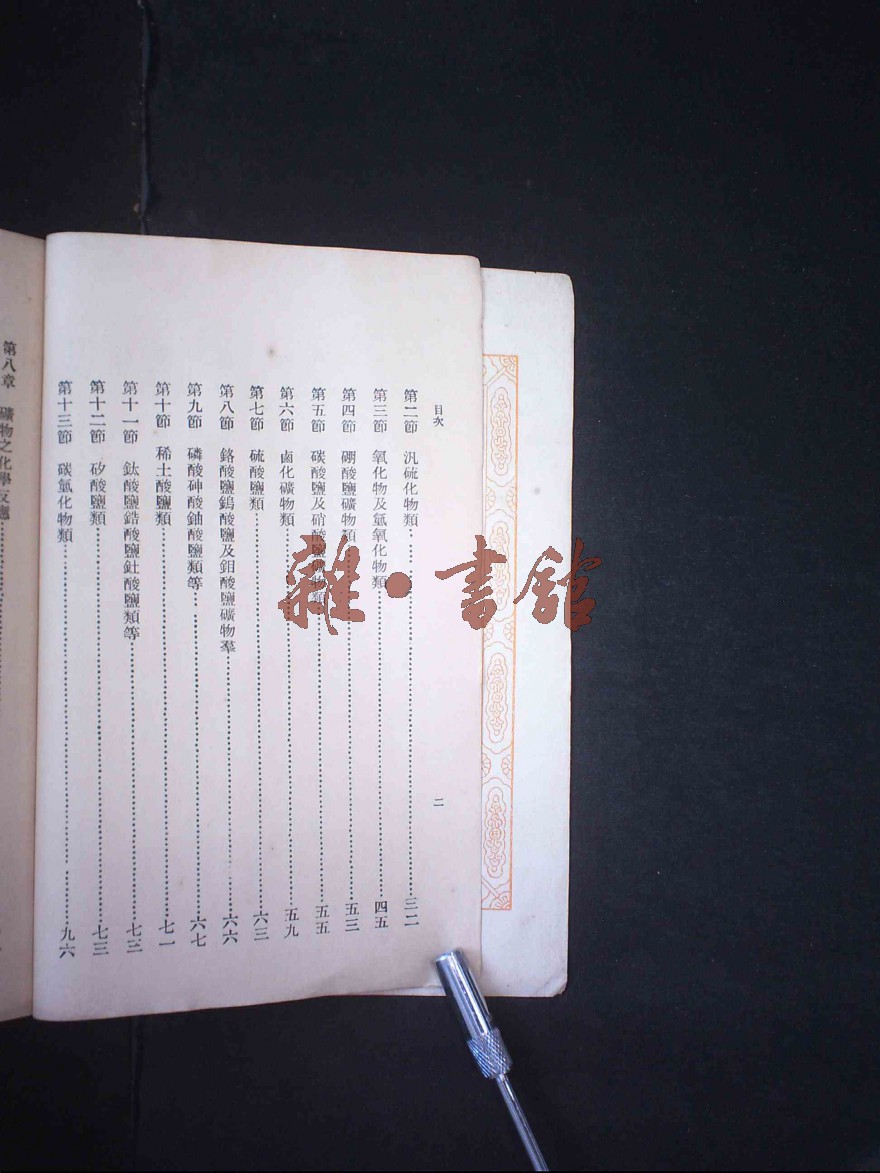 目次
二
第二節　汎硫化物類……三二
第三節　氧化物及氫氧化物類……四五
第四節　硼酸鹽礦物類……五三
第五節　碳酸鹽及硝酸鹽礦物類……五五
第六節　鹵化礦物類……五九
第七節　硫酸鹽類……六三
第八節　鉻酸鹽鎢酸鹽及鉬酸鹽礦物羣……六六
第九節　磷酸砷酸鈾酸鹽類等……六七
第十節　稀土酸鹽類……七一
第十一節　鈦酸鹽鋯酸鹽釷酸鹽類等……七三
第十二節　矽酸鹽類……七三
第十三節　碳氫化物類……九六
第八章　礦物之化學反應
雜·書館